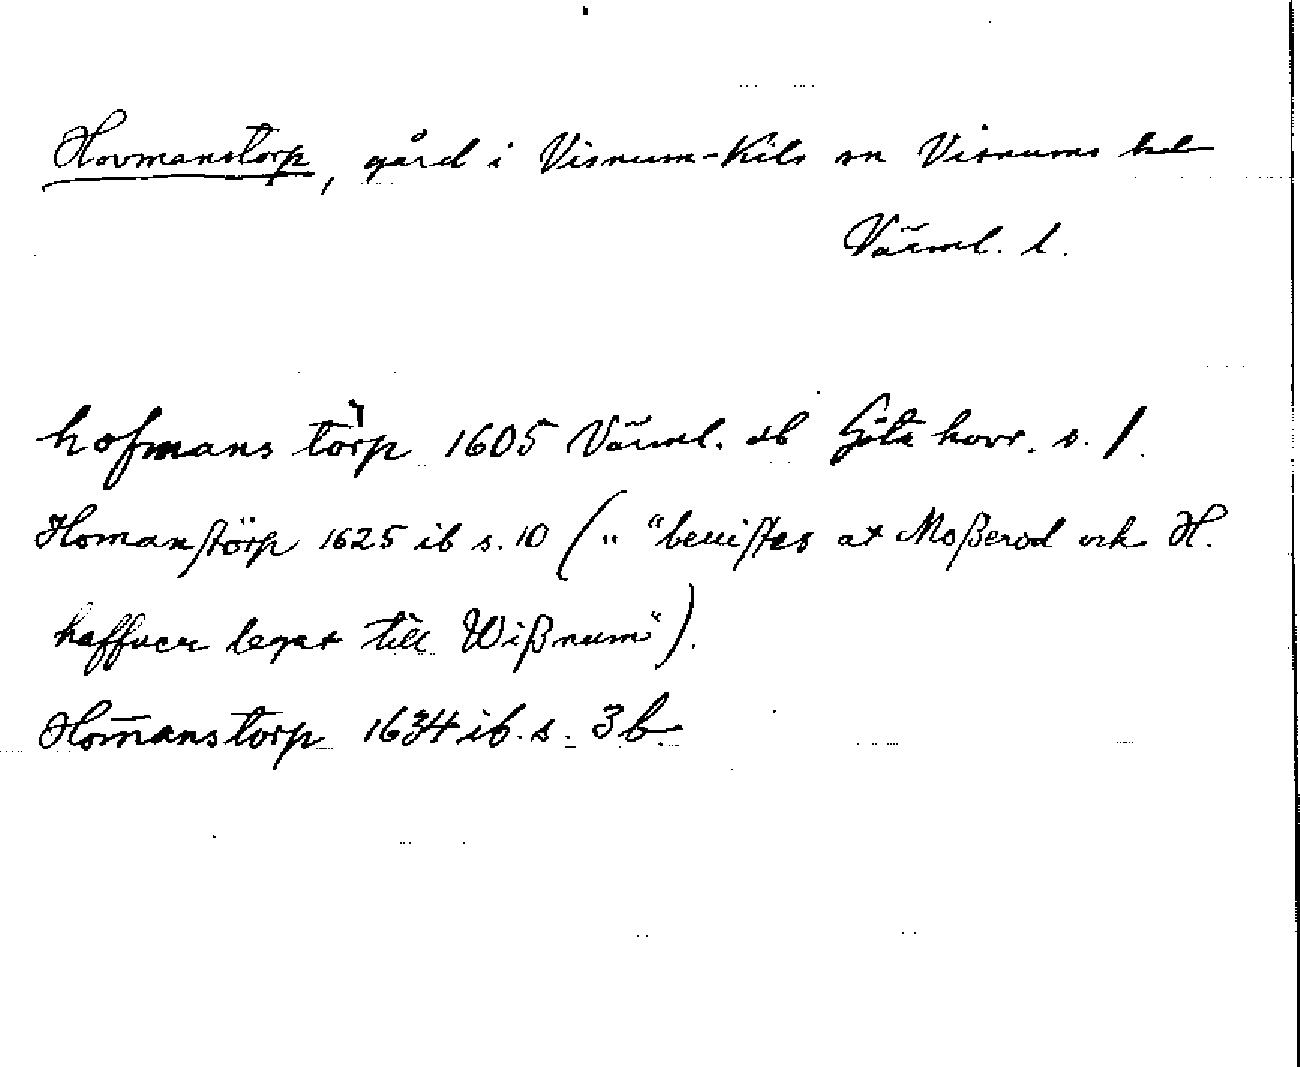 Hovmanstorp, gård i Visnum-Kils sn Visnums hd
Värml. l.
hofmans törp 1605 Värml. db Göta hovr. s. 1.
Homanstörp 1625 ib s. 10 (" "beuistes at Moßerod och H.
haffuer leget till Wißnum").
Hom̄anstorp 1634 ib. s. 3 b.